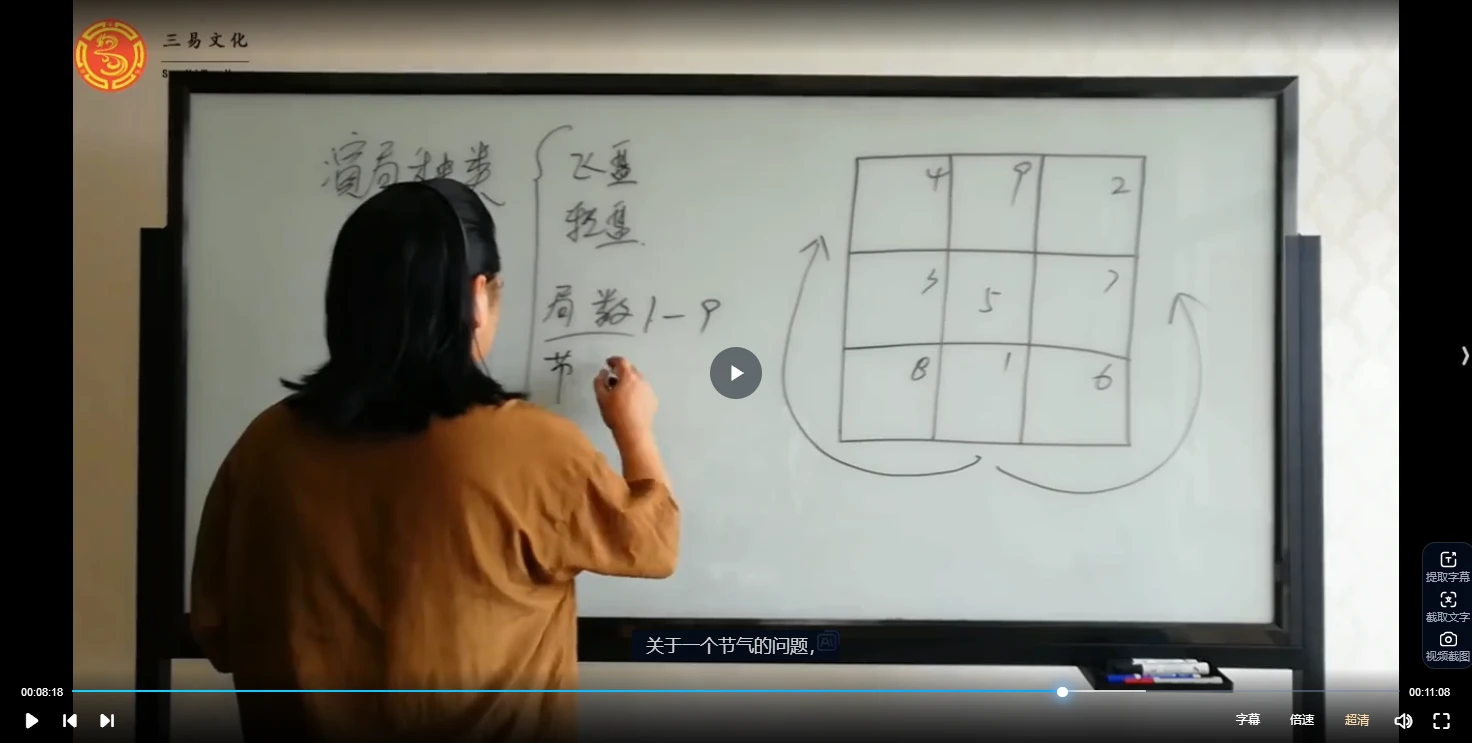 三易文化
演局种类
飞盘
转盘
局数1-9
节
4 9 2
3 5 7
8 1 6
关于一个节气的问题,
AI
提取字幕
截取文字
视频截图
00:08:18
00:11:08
字幕 倍速 超清